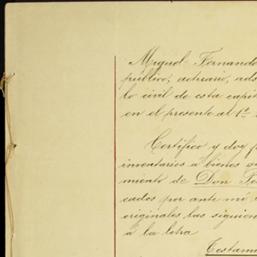 Miguel Fernando
público, actuario, ads
lo civil de esta capi
en el presente al 1º
Certifico y doy f
inventarios a bienes
miento de Don Fe
cados por ante mi
originales las siguien
a la letra
Testam